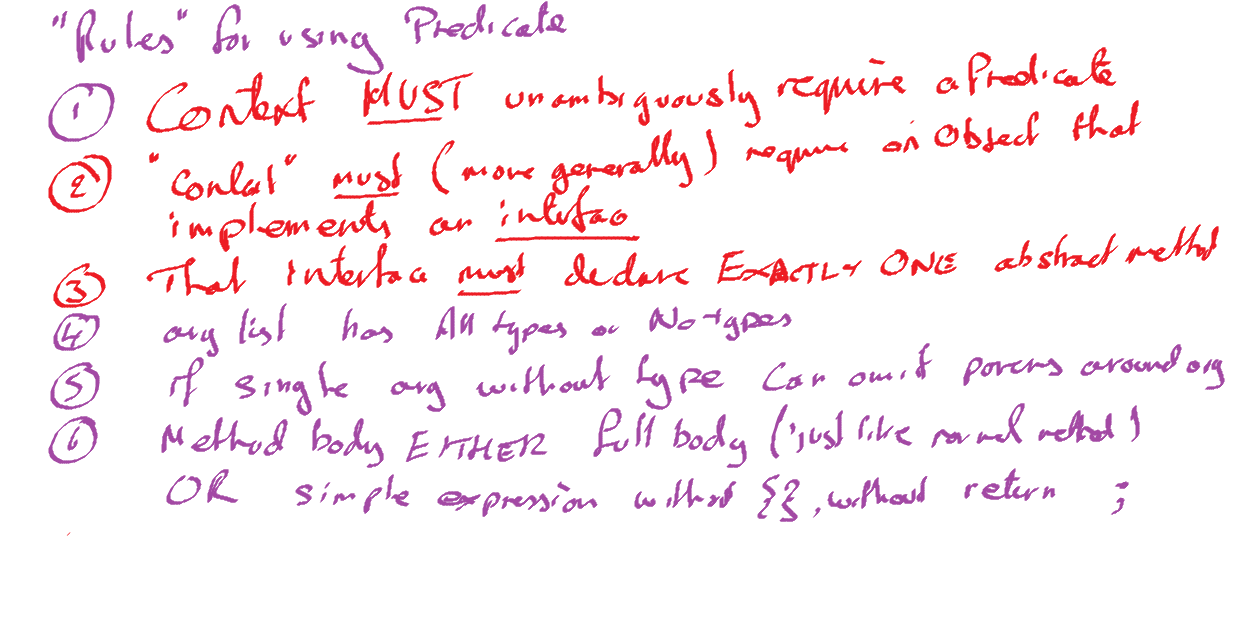 "Rules" for using Predicate
① Context MUST unambiguously require a Predicate
② "Context" must (more generally) require an Object that
implements an interface
③ That interface must declare EXACTLY ONE abstract method
④ arg list has All types or No types
⑤ if single arg without type can omit parens around arg
⑥ Method body EITHER full body (just like normal method)
OR simple expression without {}, without return ;